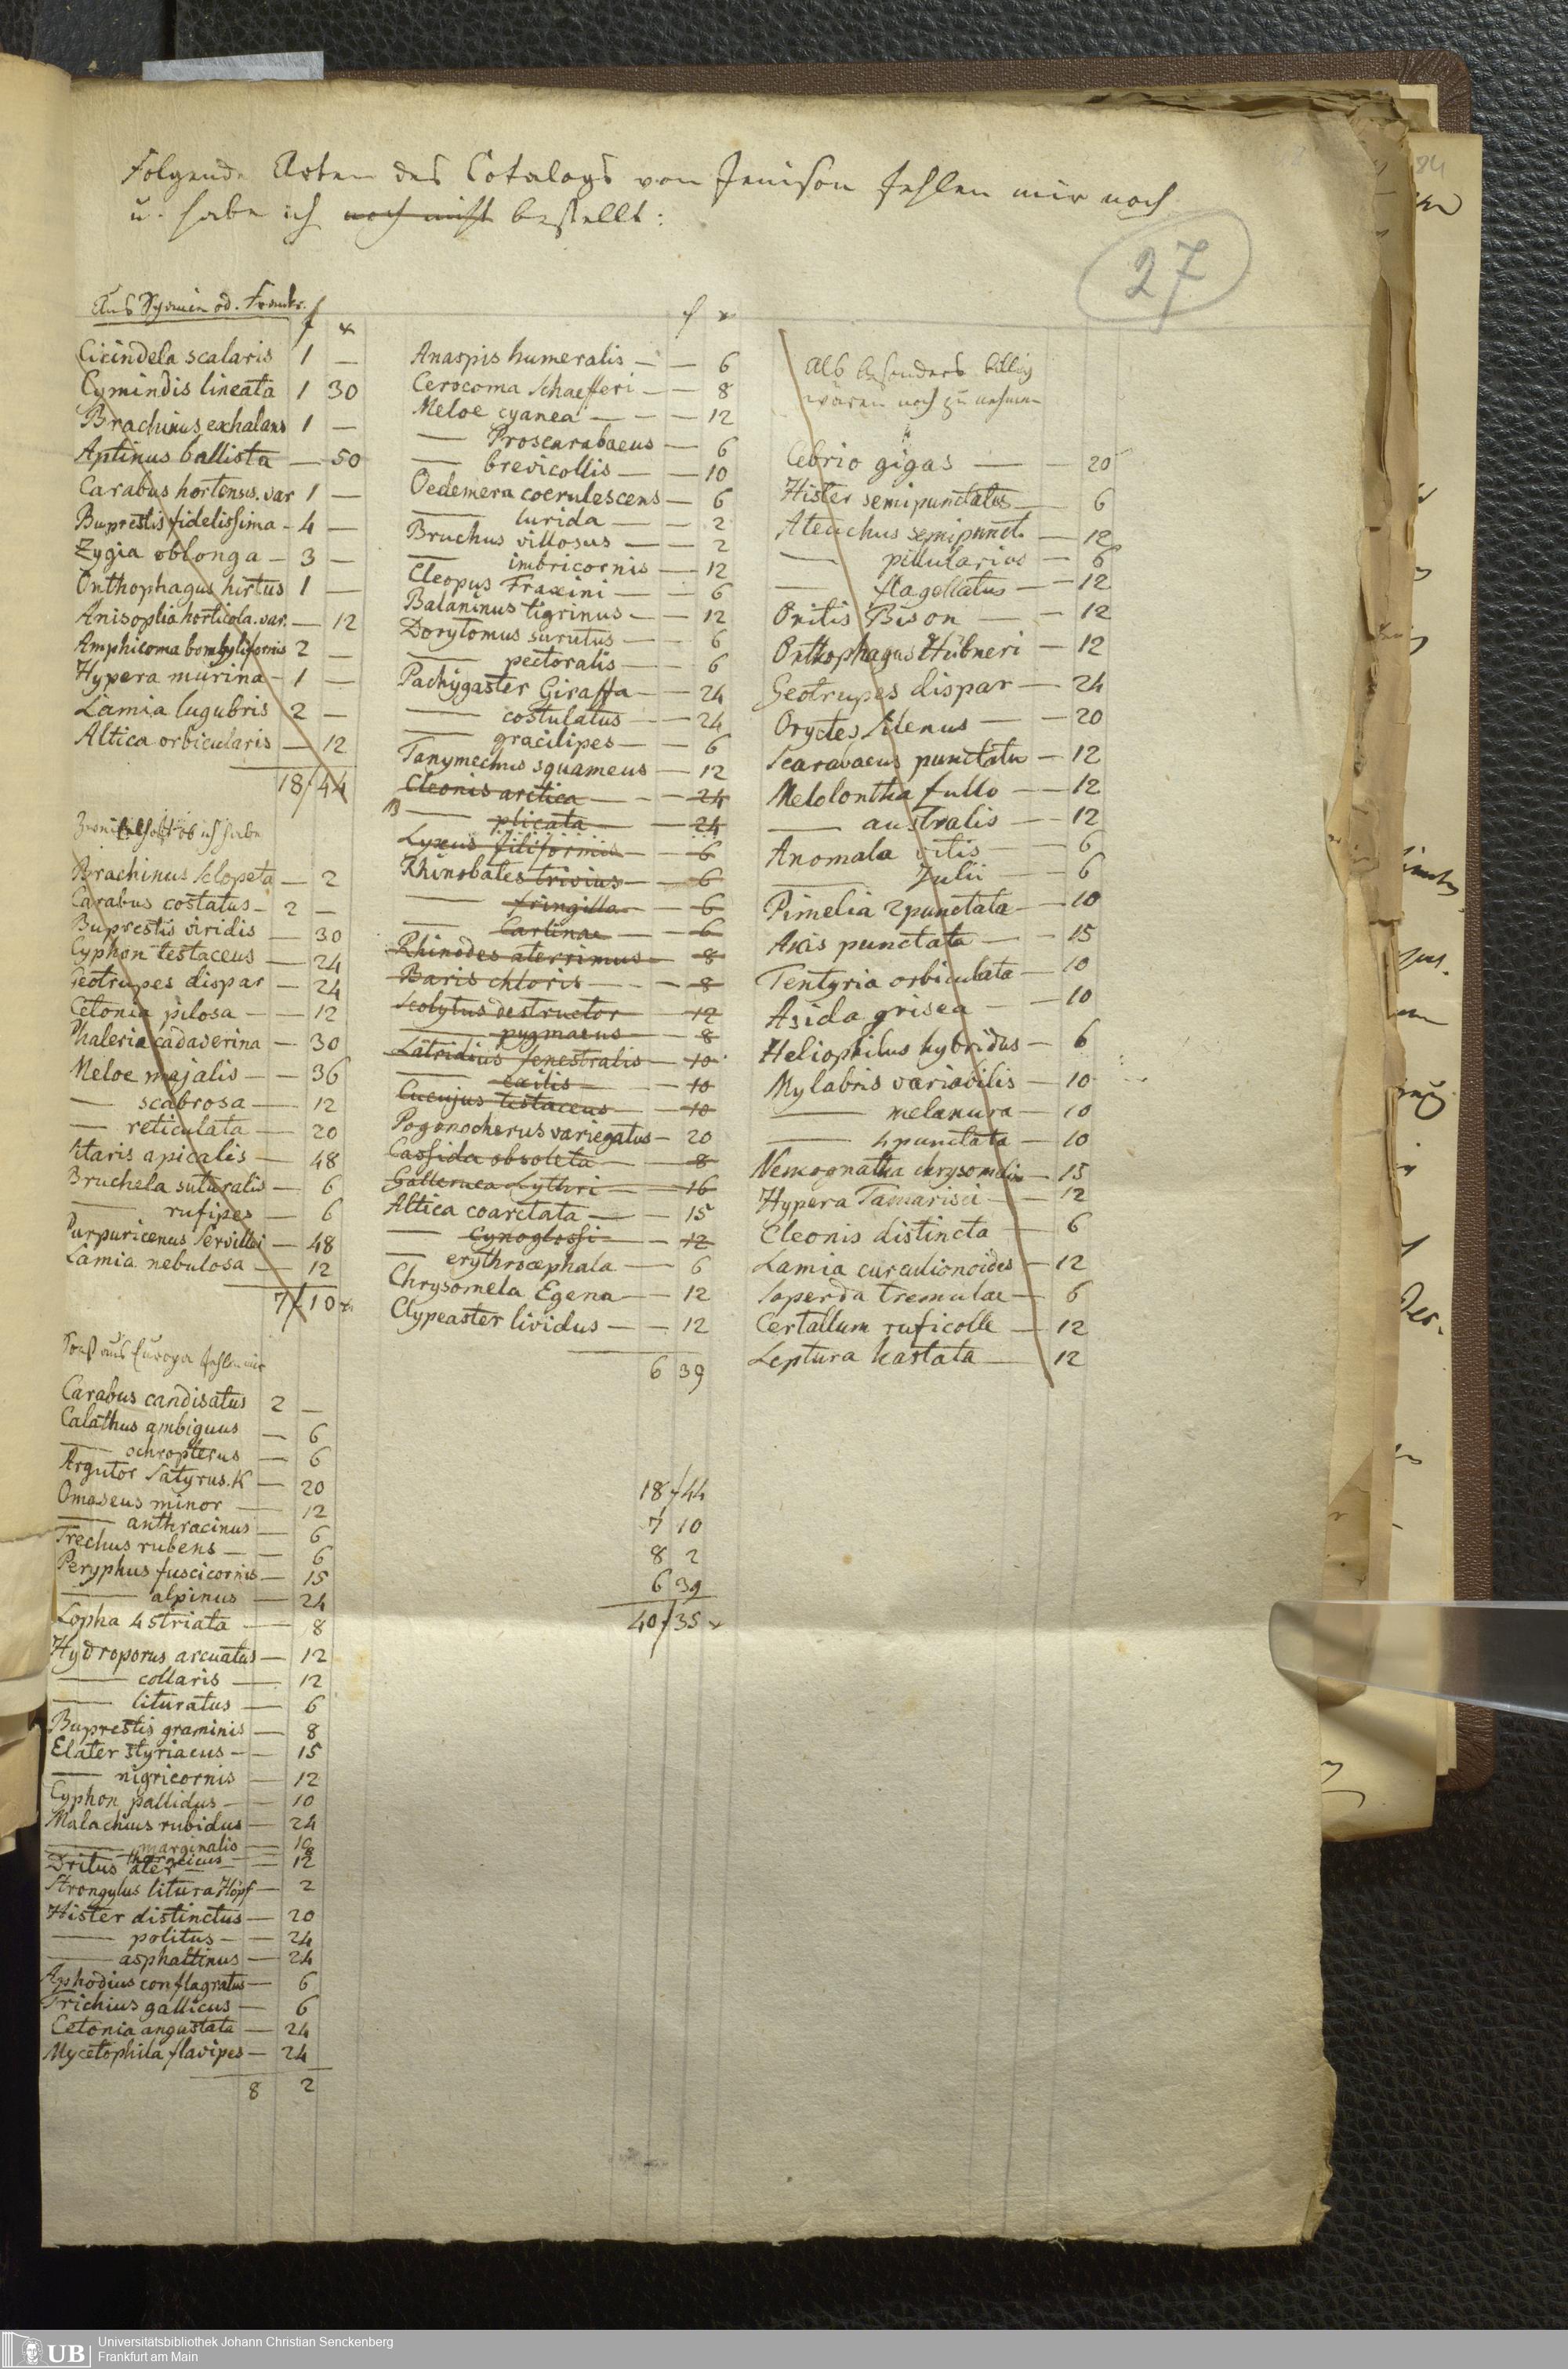 Folgende Arten des Catalogs von Jenison fehlen mir noch
u. habe ich noch nicht bestellt:
27
Aus Spanien od. Frankr.
f x
Cicindela scalaris 1 —
Cymindis lineata 1 30
Brachinus exhalans 1 —
Aptinus ballista — 50
Carabus hortensis. var 1 —
Buprestis fidelissima - 4 —
Zygia oblonga — 3 —
Onthophagus hirtus 1 —
Anisoplia horticola. var. — 12
Amphicoma bombyliformis 2 —
Hypera murina - 1 —
Lamia lugubris 2 —
Altica orbicularis — 12
18 f 44
Zweifelhaft ob ich habe
Brachinus sclopeta — 2
Carabus costatus - 2 —
Buprestis viridis — 30
Cyphon testaceus — 24
Geotrupes dispar — 24
Cetonia pilosa — — 12
Phaleria cadaverina — 30
Meloe majalis — — 36
— scabrosa — 12
— reticulata — 20
Sitaris apicalis — 48
Bruchela suturalis — 6
— rufipes — 6
Purpuricenus Servillei — 48
Lamia nebulosa — 12
7 f 10 x
Sonst aus Europa fehlen mir
Carabus candisatus 2 —
Calathus ambiguus — 6
— ochropterus — 6
Argutor Satyrus. K — 20
Omaseus minor — 12
— anthracinus — 6
Trechus rubens — — 6
Peryphus fuscicornis — 15
— alpinus — 24
Lopha 4striata — 8
Hydroporus arcuatus — 12
— collaris — 12
— lituratus — 6
Buprestis graminis — 8
Elater styriacus — — 15
— nigricornis — 12
Cyphon pallidus — — 10
Malachius rubidus — 24
— marginalis — 10
— thoracicus — 8
Drilus ater — — 12
Strongylus litura Höpf — 2
Hister distinctus — 20
— politus — — 24
— asphaltinus — 24
Aphodius conflagratus — 6
Trichius gallicus — 6
Cetonia angustata — 24
Mycetophila flavipes — 24
8 2
f x
Anaspis humeralis — — 6
Cerocoma Schaefferi — — 8
Meloe cyanea — — — 12
— Proscarabaeus — 6
— brevicollis — — 10
Oedemera coerulescens — 6
— lurida — — 2
Bruchus villosus — — 2
— imbricornis — 12
Cleopus Fraxini — — 6
Balaninus tigrinus — — 12
Dorytomus surutus — — 6
— pectoralis — — 6
Pachygaster Giraffa — — 24
— costulatus — — 24
— gracilipes — — 6
Tanymechus squameus — 12
Cleonis arctica — — — 24
— plicata — — 24
Lyxus filiformis — — 6
Rhinobates trivius — — 6
— fringilla — — 6
— Carlinae — — 6
Rhinodes aterrimus — 8
Baris chloris — — — 8
Scolytus destructor — 12
— pygmaeus — 8
Latridius fenestralis — 10
— exilis — — 10
Cucujus testaceus — — 10
Pogonocherus variegatus — 20
Cassida obsoleta — — 8
Galleruca Lythri — — 16
Altica coarctata — — 15
— Cynoglossi — — 12
— erythrocephala — 6
Chrysomela Egena — — 12
Clypeaster lividus — — 12
6 39
18 f 44
7 10
8 2
6 39
40 f 35 x
Als besonders billig
wären noch zu nehmen
Cebrio gigas — — 20
Hister semipunctatus — 6
Ateuchus semipunct. — 12
— pillularius — 6
— flagellatus — 12
Onitis Bison — — 12
Onthophagus Hübneri — 12
Geotrupes dispar — 24
Oryctes Silenus — — 20
Scarabaeus punctatus — 12
Melolontha fullo — — 12
— australis — 12
Anomala vitis — — 6
— Julii — — 6
Pimelia 2punctata — 10
Akis punctata — — 15
Tentyria orbiculata — 10
Asida grisea — — 10
Heliophilus hybridus — 6
Mylabris variabilis — 10
— melanura — 10
— 4punctata — 10
Nemognatha chrysomelin — 15
Hypera Tamarisci — 12
Cleonis distincta — 6
Lamia curculionoides — 12
Saperda tremulae — 6
Certallum ruficolle — 12
Leptura hastata — 12
UB
Universitätsbibliothek Johann Christian Senckenberg
Frankfurt am Main